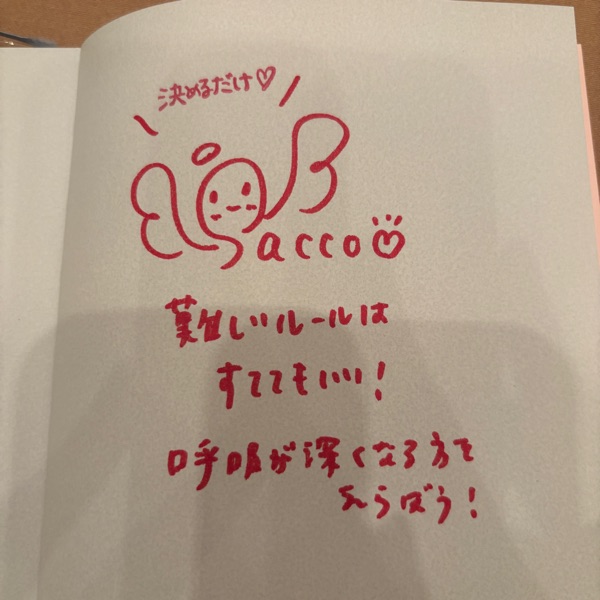 決めるだけ♡
Sacco
難しいルールは
すててもいい！
呼吸が深くなる方を
えらぼう！